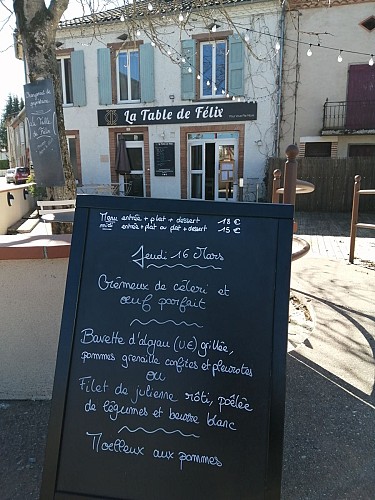 Changement de propriétaire
"La Table de Félix"
La Table de Félix
Menu entrée + plat + dessert 18 €
midi entrée + plat ou plat + dessert 15 €
Jeudi 16 Mars
Crémeux de céleri et
œuf parfait
Bavette d'aloyau (U.E) grillée,
pommes grenaille confites et pleurotes
ou
Filet de julienne rôti, poêlée
de légumes et beurre blanc
Moelleux aux pommes